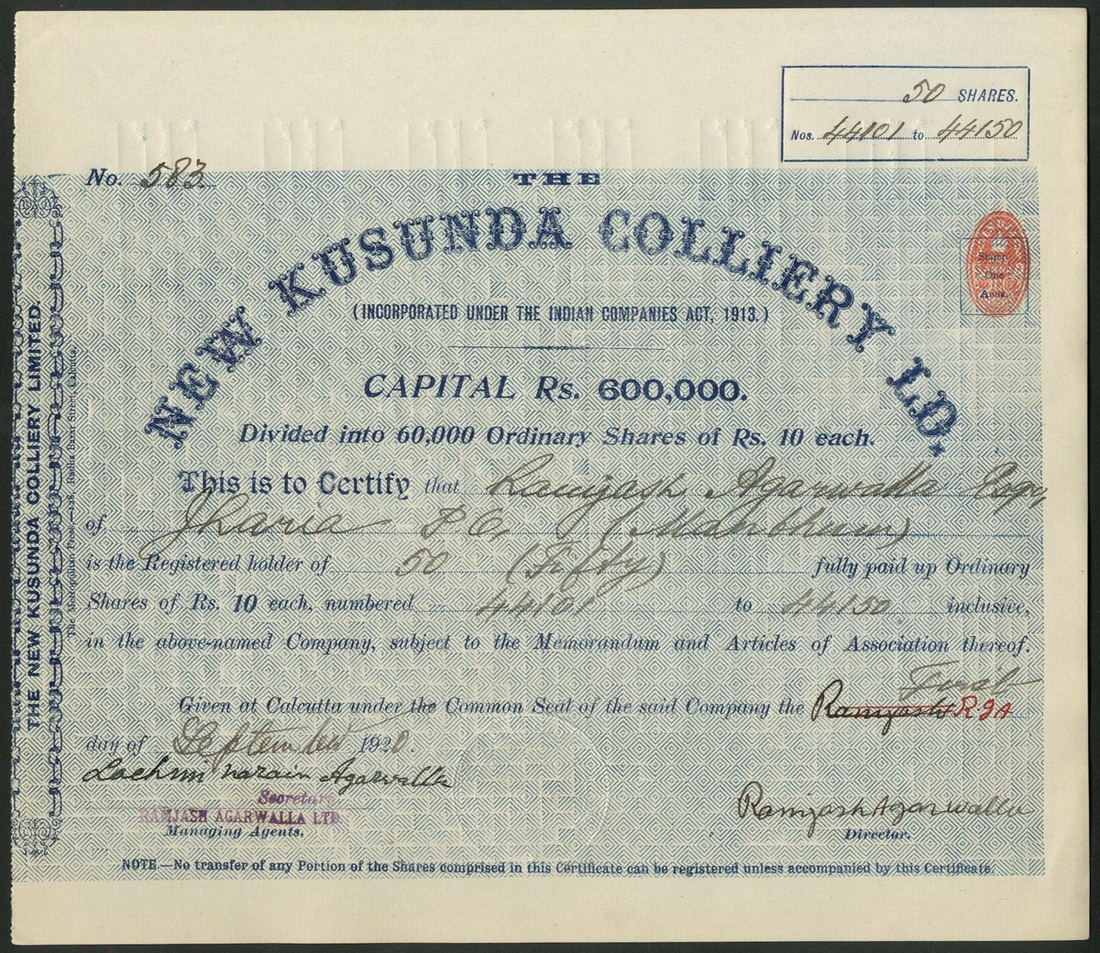 50 SHARES.
Nos. 44101 to 44150
No. 583.
THE
NEW KUSUNDA COLLIERY LD.
Stamp
One
Anna.
(INCORPORATED UNDER THE INDIAN COMPANIES ACT, 1913.)
CAPITAL Rs. 600,000.
Divided into 60,000 Ordinary Shares of Rs. 10 each.
This is to Certify that Ramjash Agarwalla Esqr,
of Jharia P.O. (Manbhum)
is the Registered holder of 50 (Fifty) fully paid up Ordinary
Shares of Rs. 10 each, numbered 44101 to 44150 inclusive,
in the above-named Company, subject to the Memorandum and Articles of Association thereof.
First
Given at Calcutta under the Common Seal of the said Company the Ramjash RJA
day of September 1920.
Lachmi Narain Agarwalla
Secretary
RAMJASH AGARWALLA LTD.
Managing Agents.
Ramjash Agarwalla
Director.
NOTE.—No transfer of any Portion of the Shares comprised in this Certificate can be registered unless accompanied by this Certificate.
THE NEW KUSUNDA COLLIERY LIMITED.
The Metropolitan Press, Radha Bazar Street, Calcutta.